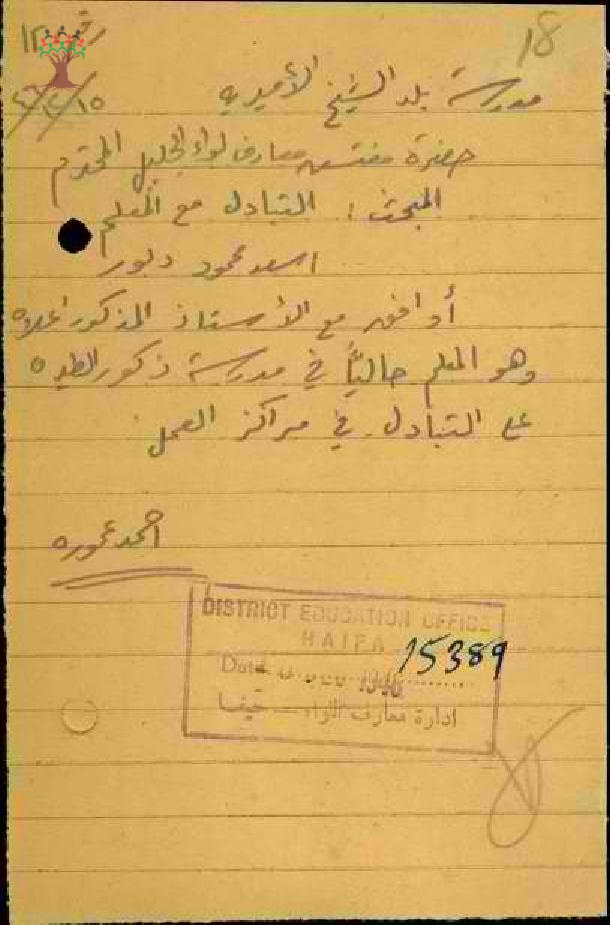 18
مدرسة بلد الشيخ الأميرية
حضرة مفتش معارف لواء الجليل المحترم
المبحث: التبادل مع المعلم
اسعد محمود
أوافق مع الأستاذ المذكور اعلاه
وهو المعلم حالياً في مدرسة ذكور الطيره
على التبادل في مراكز العمل
احمد
DISTRICT EDUCATION OFFICE
HAIFA
15389
Date 1946
ادارة معارف اللواء حيفا